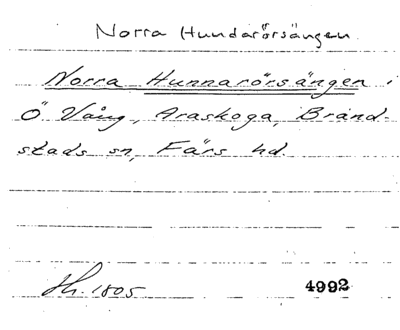 Norra Hundarörsängen
Norra Hunnarörsängen i
Ö Vång, Araskoga, Bränd-
stads sn, Färs hd.
Hh. 1805 4992